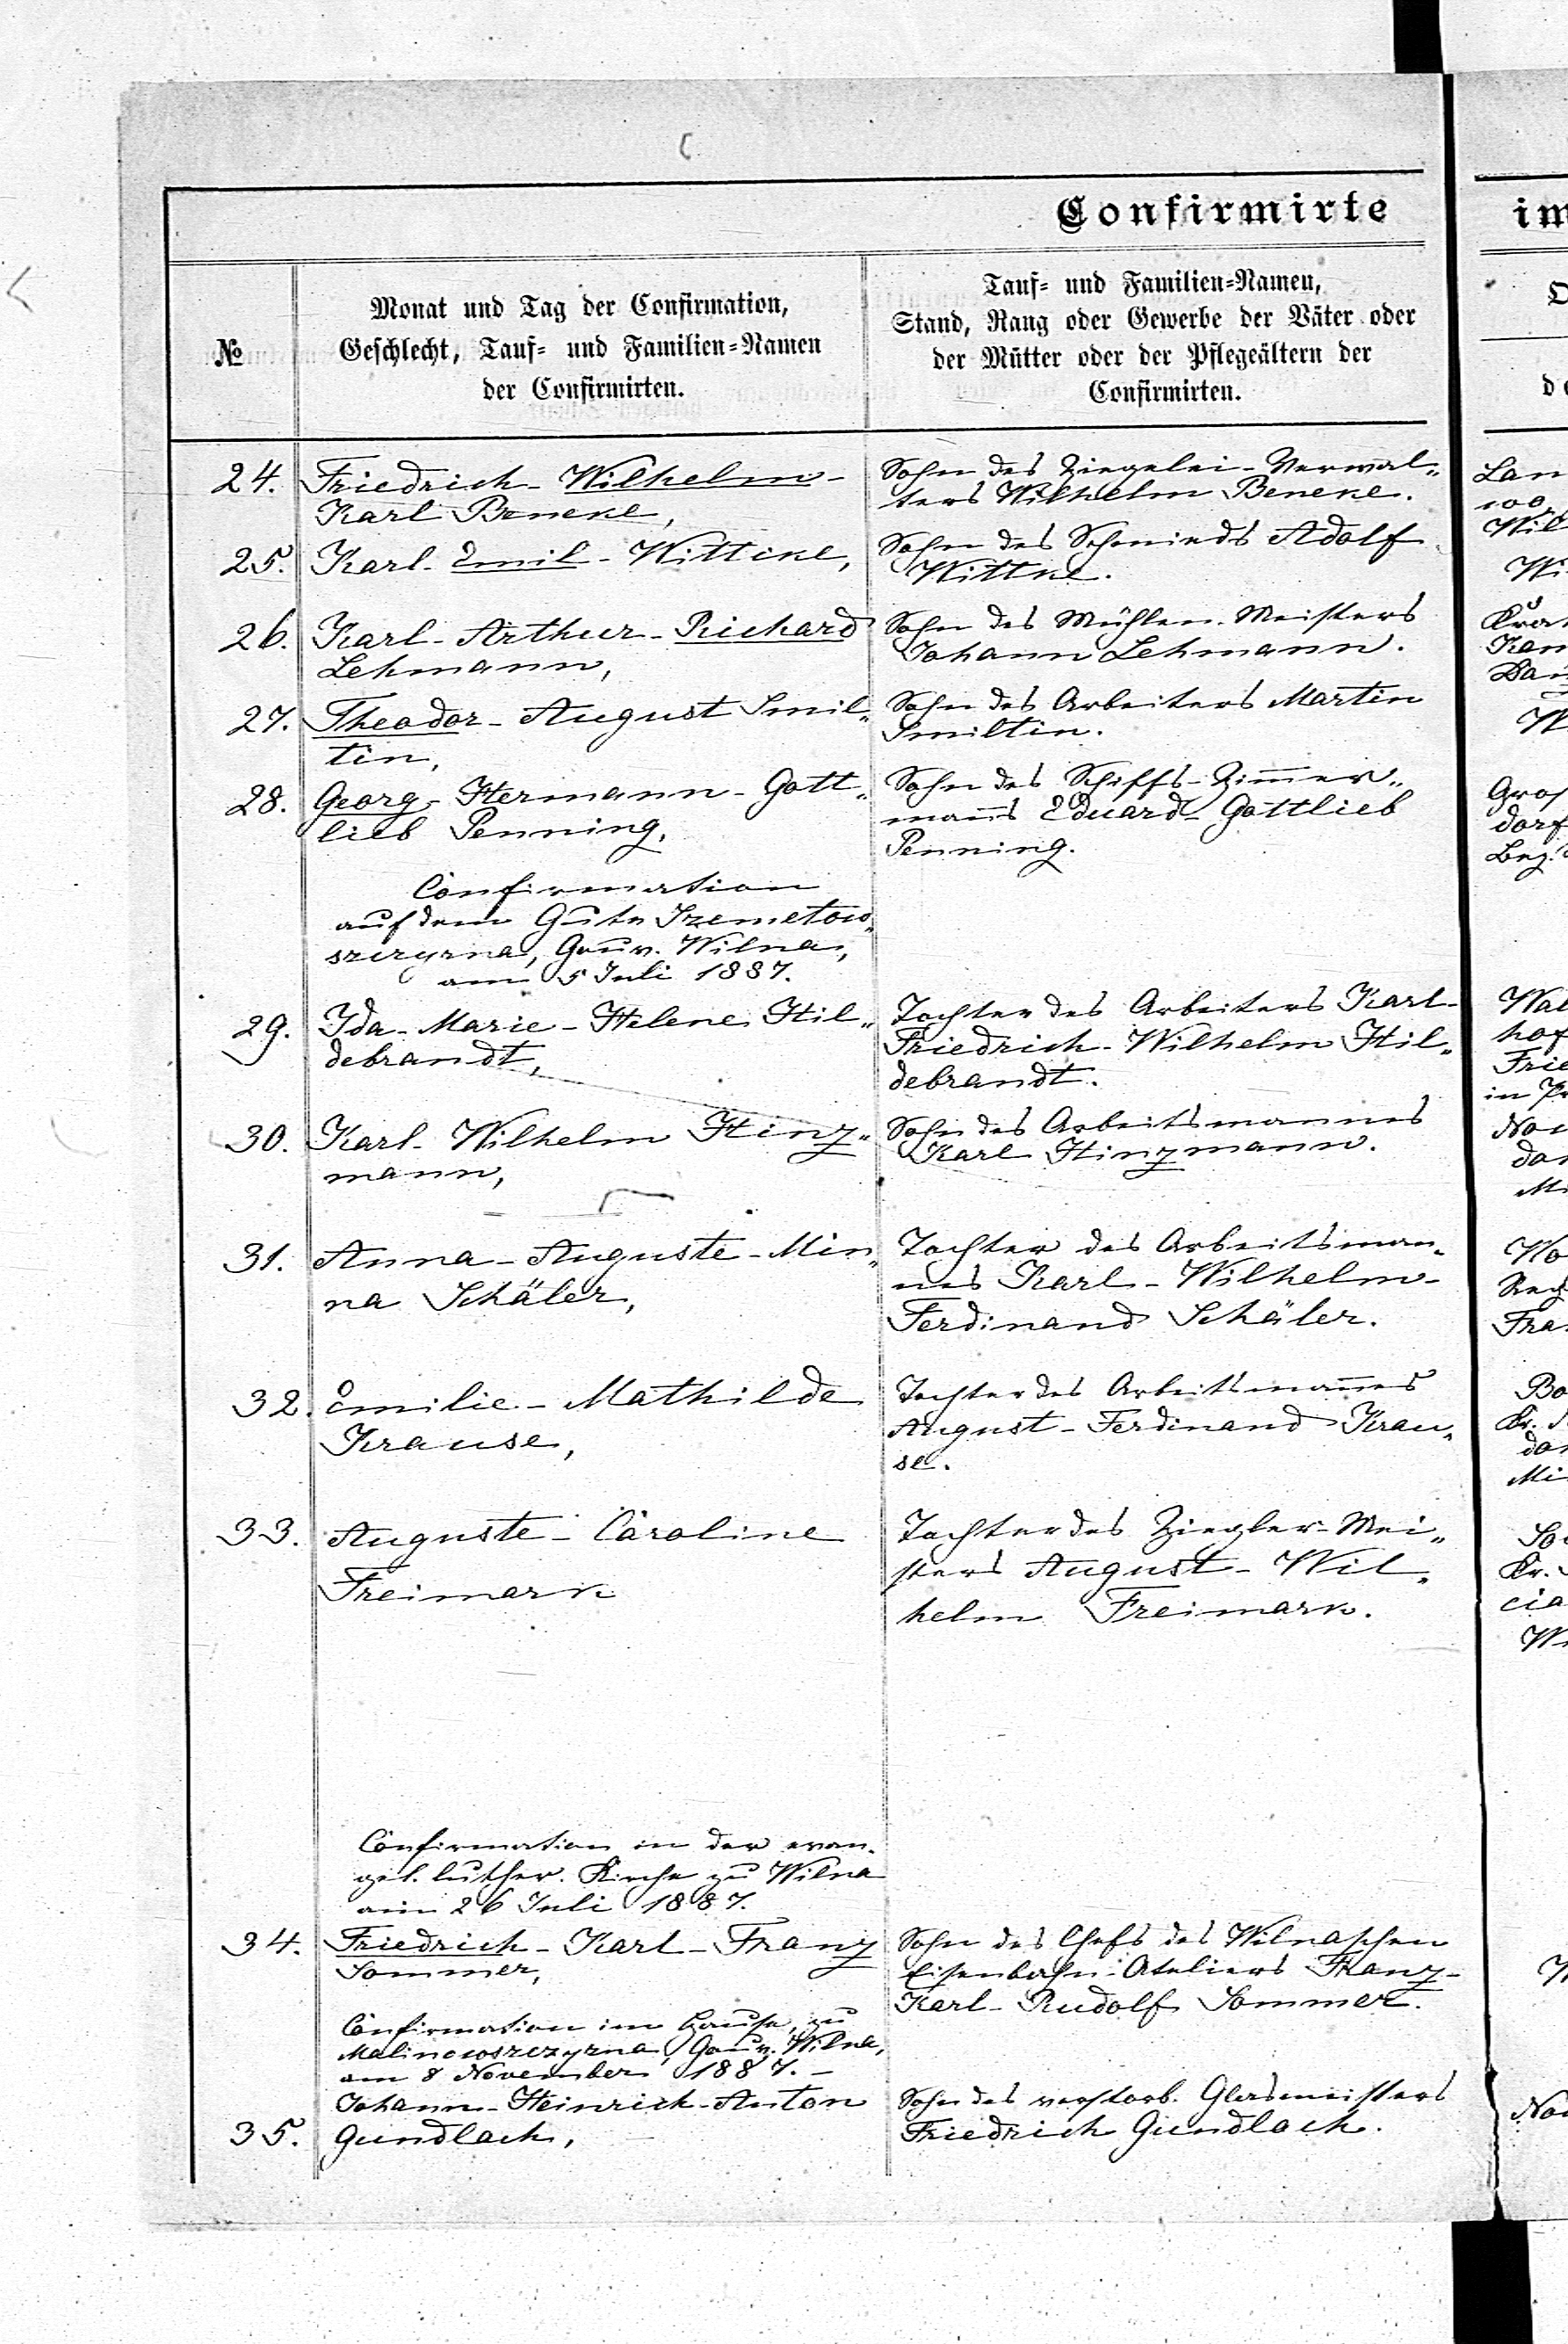 Confirmirte
im
№
Monat und Tag der Confirmation,
Geschlecht, Tauf- und Familien-Namen
der Confirmirten.
Tauf- und Familien-Namen,
Stand, Rang oder Gewerbe der Väter oder
der Mütter oder der Pflegeältern der
Confirmirten.
24.
Friedrich-Wilhelm-
Karl Beneke,
Sohn des Ziegelei-Verwal„
ters Wilhelm Beneke.
25.
Karl-Emil-Wittike,
Sohn des Schmieds Adolf
Wittke.
26.
Karl-Arthur-Richard
Lehmann,
Sohn des Mühlen-Meisters
Johann Lehmann.
27.
Theodor-August Smil„
tin,
Sohn des Arbeiters Martin
Smiltin.
28.
Georg-Hermann-Gott„
lieb Penning,
Sohn des Schiffs-Zimmer„
manns Eduard-Gottlieb
Penning.
Confirmation
auf dem Gute
Gouv. Wilna,
am 5 Juli 1887.
29.
Ida-Marie-Helene Hil„
debrandt,
Tochter des Arbeiters Karl-
Friedrich-Wilhelm Hil„
debrandt.
30.
Karl-Wilhelm Hinz„
mann,
Sohn des Arbeitsmannes
Karl Hinzmann.
31.
Anna-Auguste-Min„
na Schäler,
Tochter des Arbeitsman„
nes Karl-Wilhelm-
Ferdinand Schäler.
32.
Emilie-Mathilde
Krause,
Tochter des Arbeitsmannes
August-Ferdinand Krau„
se.
33.
Auguste-Caroline
Freimark
Tochter des Ziegler-Mei„
sters August-Wil„
helm Freimark.
Confirmation in der evan„
gel. luther. Kirche zu Wilna
am 26 Juli 1887.
34.
Friedrich-Karl-Franz
Sommer,
Sohn des Chefs des Wilnaschen
Eisenbahn-Ateliers Franz-
Karl-Rudolf Sommer.
Confirmation im Hause zu
Malinowszczyzna, Gouv. Wilna,
am 8 November 1887.-
35.
Johann-Heinrich-Anton
Gundlach,
Sohn des verstorb. Glasmeisters
Friedrich Gundlach.